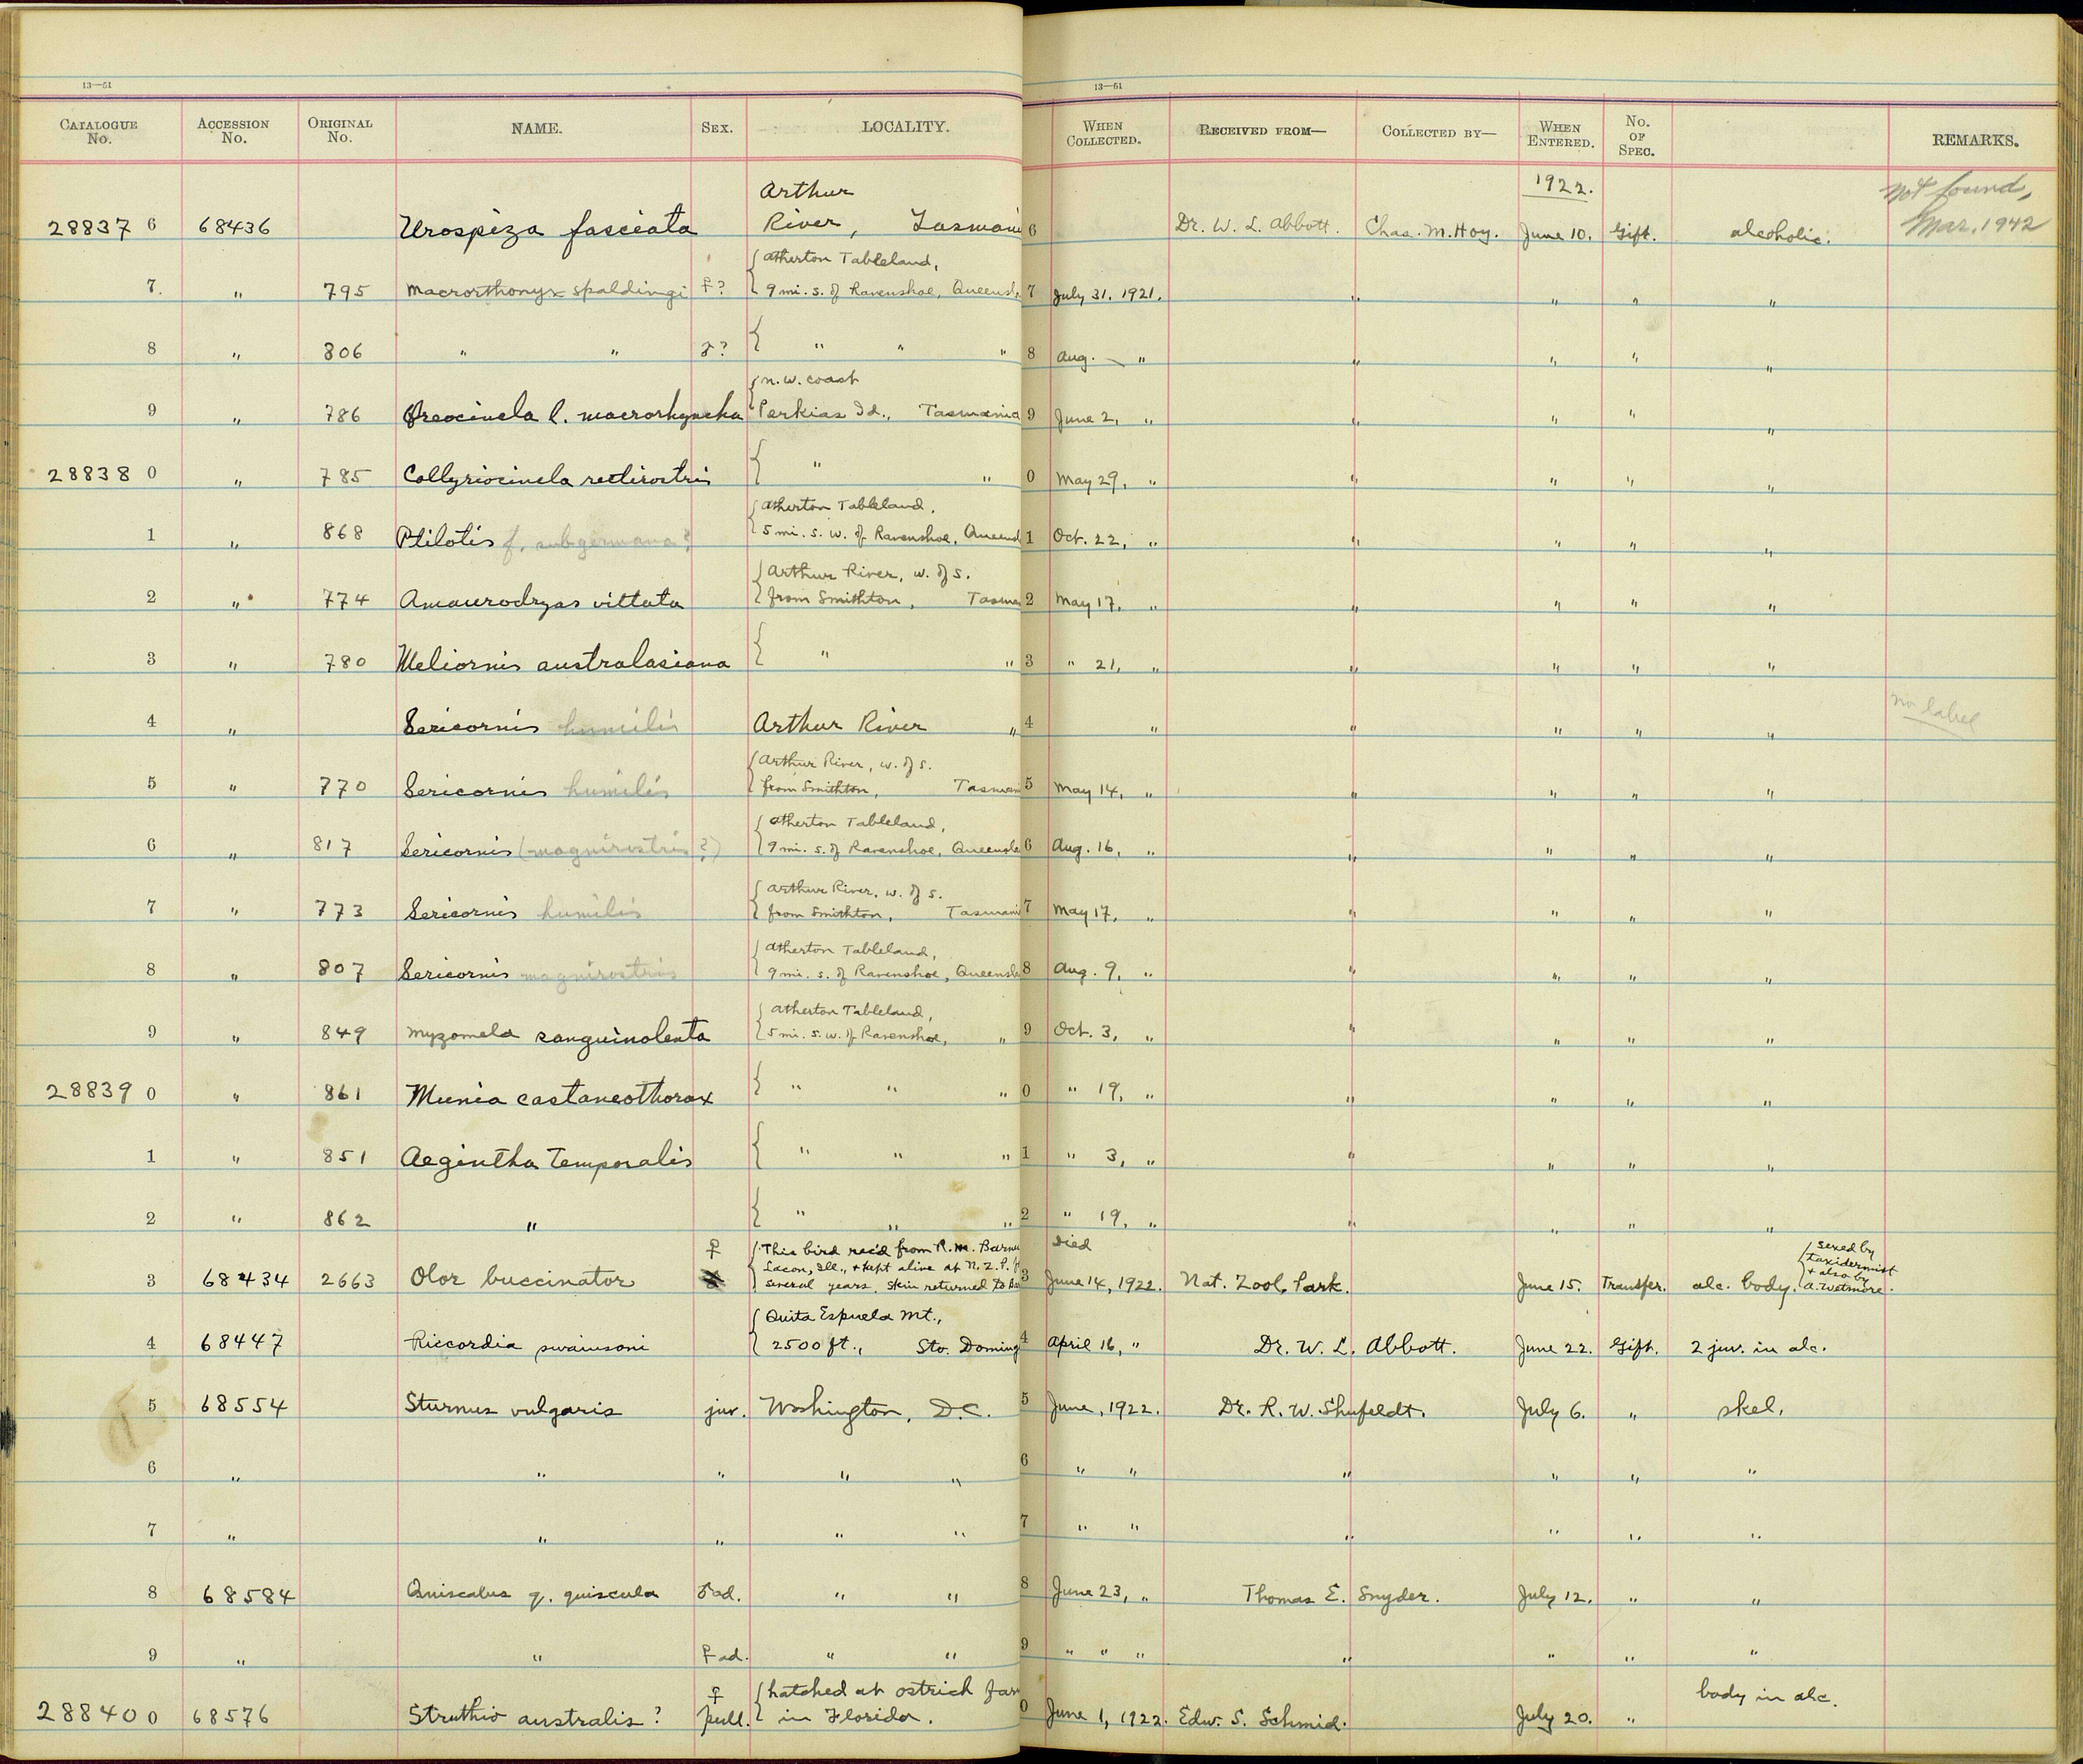 13—51
13—51
CATALOGUE No. ACCESSION No. ORIGINAL No. NAME. SEX. LOCALITY. WHEN COLLECTED. RECEIVED FROM— COLLECTED BY— WHEN ENTERED. No. OF SPEC. REMARKS.
1922.
Arthur
not found,
28837 6 68436 Urospiza fasciata River, Tasmani 6 Dr. W. L. Abbott. Chas. M. Hoy. June 10. Gift. alcoholic. Mar. 1942
{ Atherton Tableland,
7. " 795 Macrorthonyx spaldingi ♀? 9 mi. s. of Ravenshoe, Queensl 7 July 31. 1921. " " " "
8 " 806 " " ♂? { " " " 8 Aug. — " " " " "
{ n. w. coast
9 " 786 Oreocincla l. macrorhyncha Perkias Id., Tasmania 9 June 2, " " " " "
28838 0 " 785 Collyriocincla rectirostris { " " 0 May 29, " " " " "
{ Atherton Tableland,
1 " 868 Ptilotis f. subgermana? 5 mi. s. w. of Ravenshoe, Queensl 1 Oct. 22, " " " " "
{ Arthur River, w. of s.
2 " 774 Amaurodryas vittata from Smithton, Tasma 2 May 17, " " " " "
3 " 780 Meliornis australasiana { " " 3 " 21, " " " " "
4 " Sericornis humilis Arthur River " 4 " " " " " no label
{ Arthur River, w. of s.
5 " 770 Sericornis humilis from Smithton, Tasmani 5 May 14, " " " " "
{ Atherton Tableland,
6 " 817 Sericornis (magnirostris?) 9 mi. s. of Ravenshoe, Queensla 6 Aug. 16, " " " " "
{ Arthur River, w. of s.
7 " 773 Sericornis humilis from Smithton, Tasmani 7 May 17, " " " " "
{ Atherton Tableland,
8 " 807 Sericornis magnirostris 9 mi. s. of Ravenshoe, Queensla 8 Aug. 9, " " " " "
{ Atherton Tableland,
9 " 849 Myzomela sanguinolenta 5 mi. s. w. of Ravenshoe, " 9 Oct. 3, " " " " "
28839 0 " 861 Munia castaneothorax { " " " 0 " 19, " " " " "
1 " 851 Aegintha temporalis { " " " 1 " 3, " " " " "
2 " 862 " { " " " 2 " 19, " " " " "
♀ { This bird rec'd from R. M. Barnes Died { sexed by
Lacon, Ill., + kept alive at N. Z. P. taxidermist
+ also by
3 68434 2663 Olor buccinator several years. Skin returned to Ba 3 June 14, 1922. Nat. Zool. Park. June 15. Transfer. alc. body. A. Wetmore.
{ Quita Espuela Mt.,
4 68447 Riccordia swainsoni 2500 ft., Sto. Doming 4 April 16, " Dr. W. L. Abbott. June 22. Gift. 2 juv. in alc.
5 68554 Sturnus vulgaris juv. Washington, D.C. 5 June, 1922. Dr. R. W. Shufeldt. July 6. " skel.
6 " " " " " 6 " " " " " "
7 " " " " " 7 " " " " " "
8 68584 Quiscalus q. quiscula ♂ad. " " 8 June 23, " Thomas E. Snyder. July 12. " "
9 " " ♀ad. " " 9 " " " " " " "
♀ { hatched at ostrich far body in alc.
28840 0 68576 Struthio australis? pull. in Florida. 0 June 1, 1922. Edw. S. Schmid. July 20. "